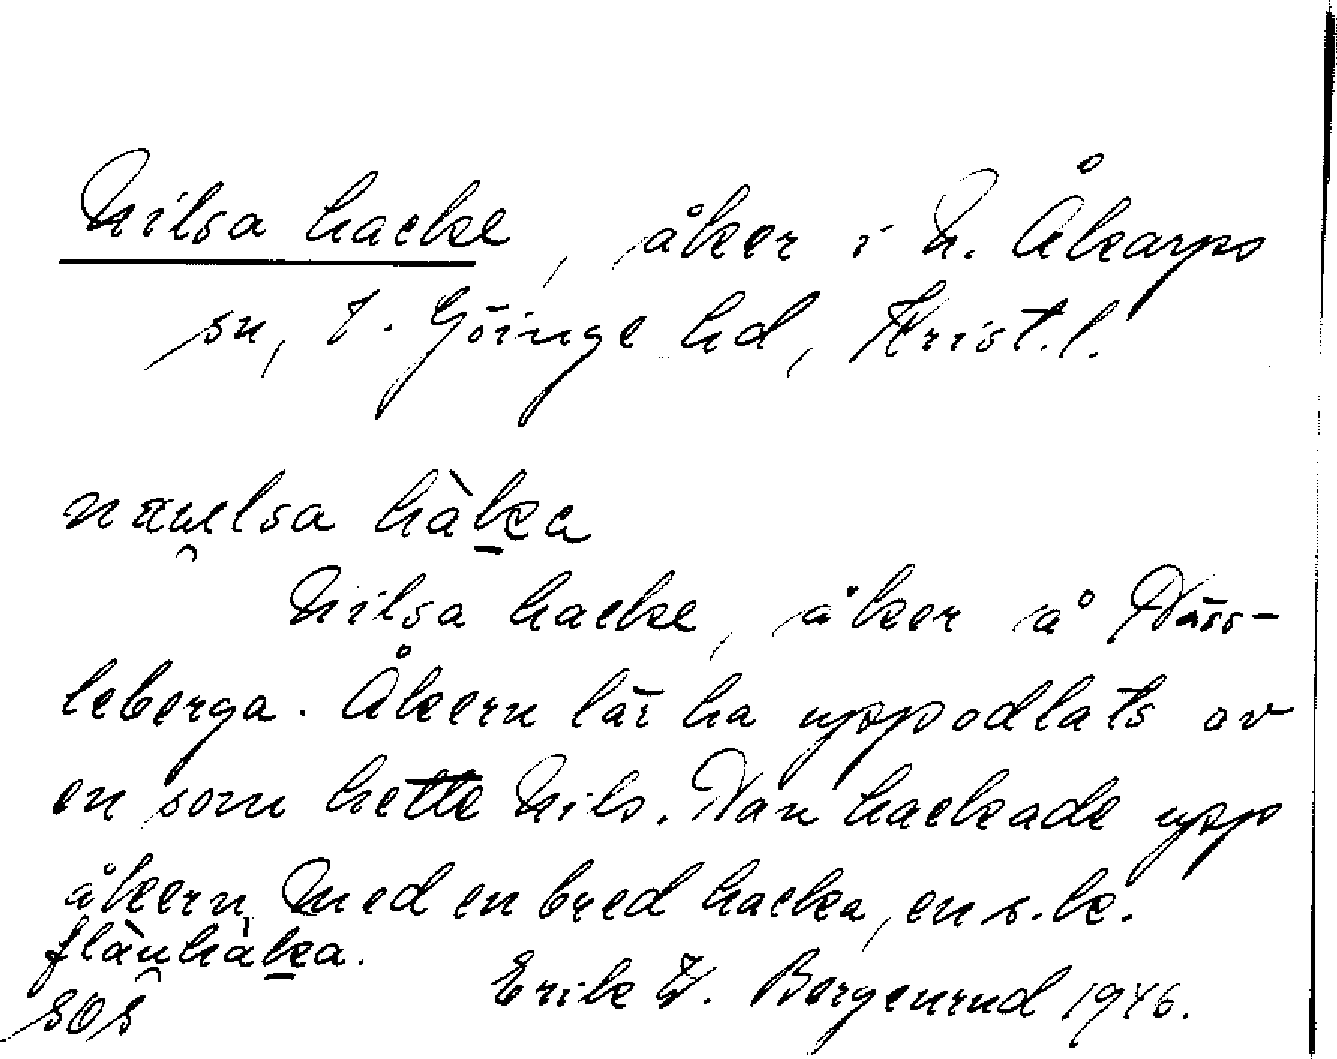 Nilsa hacke, åker i N. Åkarps
sn, V. Göinge hd, Krist. l.
hàka
Nilsa hacke, åker å Häss-
leberga. Åkern lär ha uppodlats av
en som hette Nils. Han hackade upp
åkern med en bred hacka, en s.k.
flånhàka.
Erik W. Bergenrud 1946.